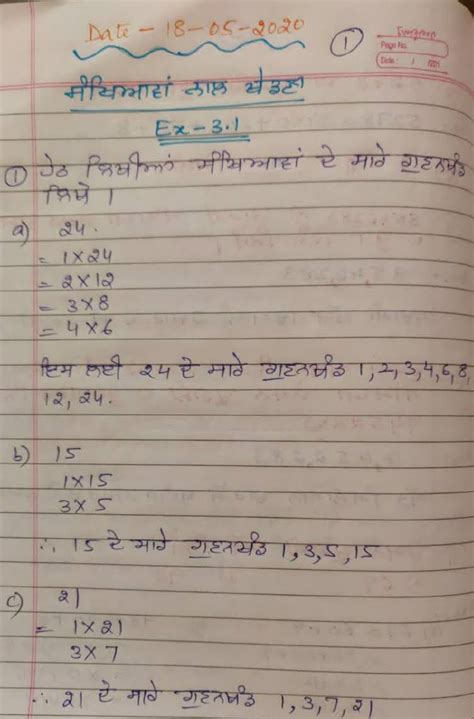 Date - 18-05-2020
1
Evergreen
Page No.
Date: / /
ਸੰਖਿਆਵਾਂ ਨਾਲ ਖੇਡਣਾ
Ex - 3.1
① ਹੇਠ ਲਿਖੀਆਂ ਸੰਖਿਆਵਾਂ ਦੇ ਸਾਰੇ ਗੁਣਨਖੰਡ
ਲਿਖੋ ।
a) 24.
= 1×24
= 2×12
= 3×8
= 4×6
ਇਸ ਲਈ 24 ਦੇ ਸਾਰੇ ਗੁਣਨਖੰਡ 1,2,3,4,6,8,
12, 24.
b) 15
1×15
3×5
∴ 15 ਦੇ ਸਾਰੇ ਗੁਣਨਖੰਡ 1,3,5,15
c) 21
= 1×21
3×7
∴ 21 ਦੇ ਸਾਰੇ ਗੁਣਨਖੰਡ 1,3,7,21